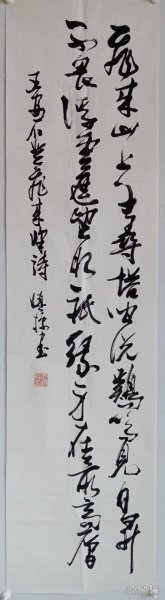 飛来山上千尋塔聞說鷄鳴見日昇
不畏浮雲遮望眼祇緣身在最高層
王安石登飛来峰詩